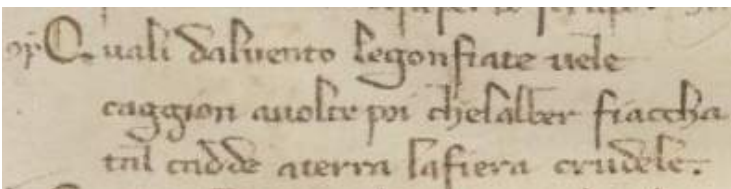 Quali dalvento legonfiate vele
caggion avolte poi chelalber fiaccha
tal cadde aterra lafiera crudele.